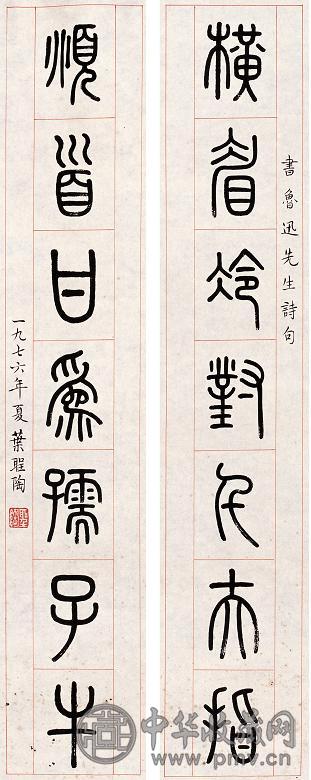 書魯迅先生詩句
橫眉冷對千夫指
頫首甘爲孺子牛
一九七六年夏 葉聖陶
中华收藏网